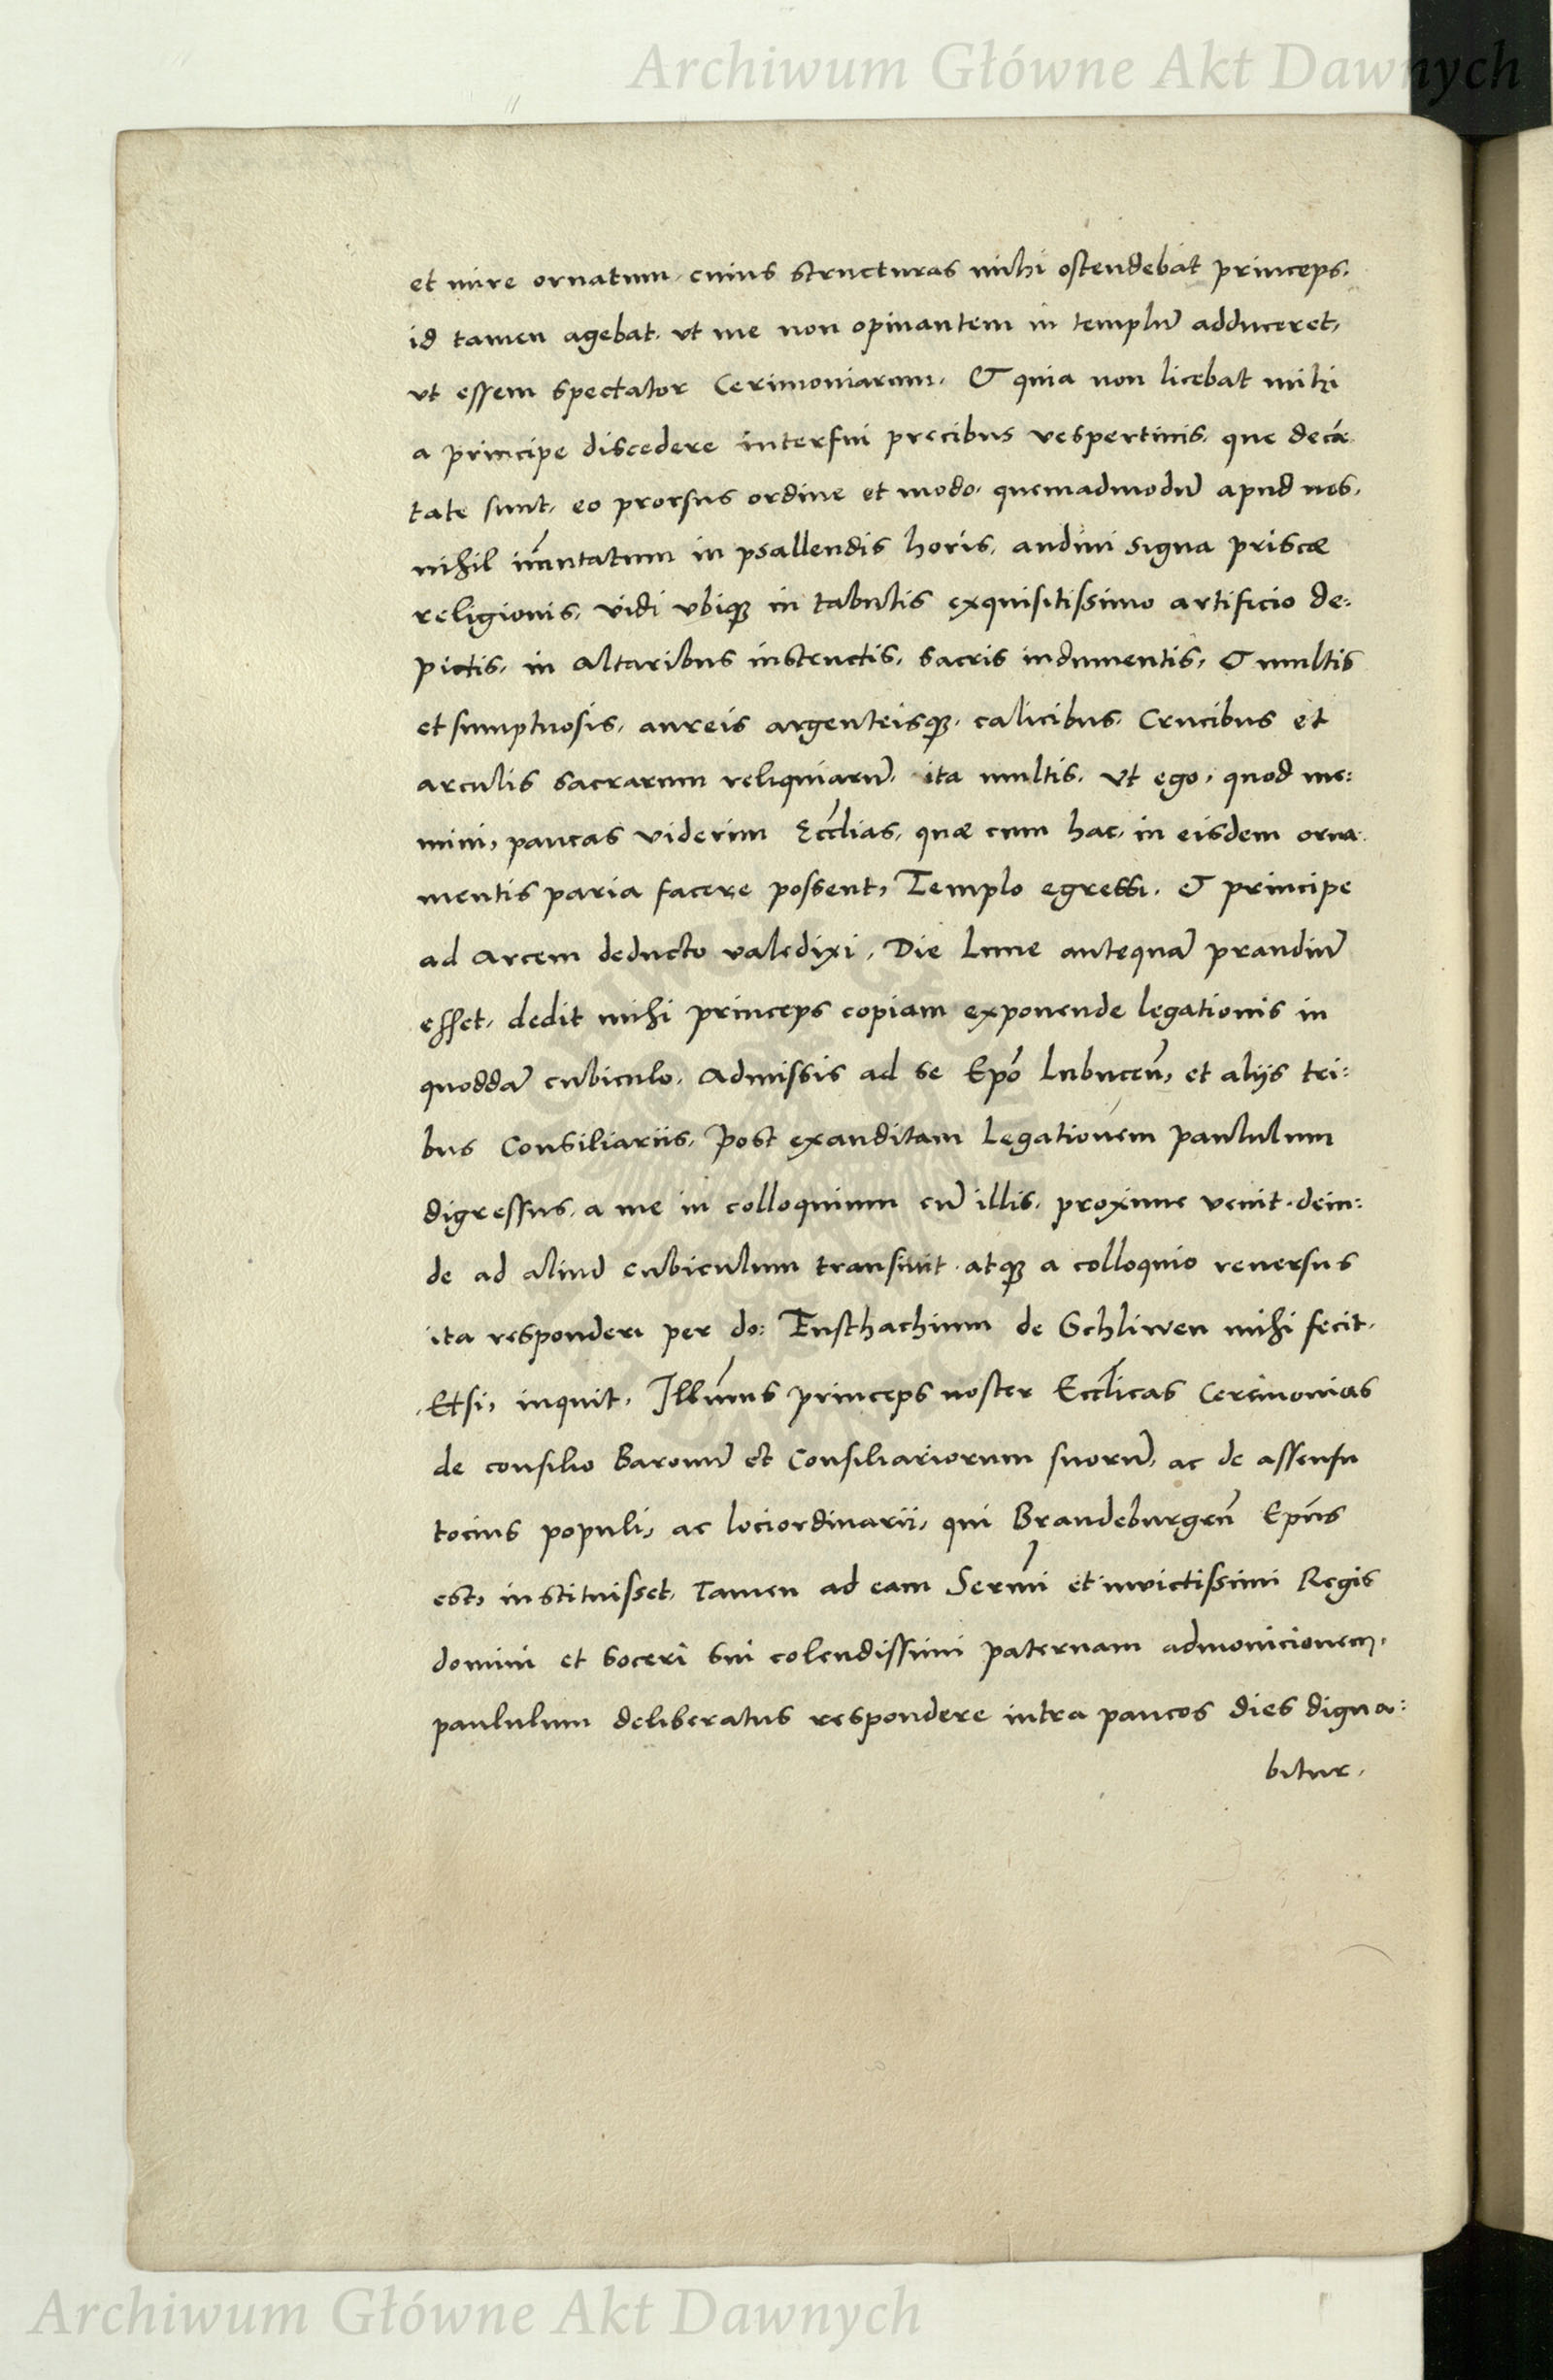 Archiwum Główne Akt Dawnych
et mire ornatum, cuius structuras mihi ostendebat princeps,
id tamen agebat, ut me non opinantem in templũ adduceret,
ut essem spectator Cerimoniarum, & quia non licebat mihi
a principe discedere interfui precibus vespertinis, que decã
tate sunt, eo prorsus ordine et modo, quemadmodũ apud nos,
nihil im̃utatum in psallendis horis, audivi signa priscæ
religionis, vidi ubiqꝫ in tabulis exquisitissimo artificio de:
pictis, in altaribus instructis, sacris indumentis, & multis
et sumptuosis, aureis argenteisqꝫ, calicibus, Crucibus et
arculis sacrarum reliquiarũ, ita multis, ut ego, quod me:
mini, paucas viderim Eccl̃ias, quæ cum hac, in eisdem orna:
mentis paria facere possent, Templo egressi, & principe
ad arcem deducto valedixi, Die Lune antequã prandiũ
esset, dedit mihi princeps copiam exponende legationis in
quoddã cubiculo, Admissis ad se Ep̃o Lubuceñ, et aliis tri:
bus Consiliariis, Post exauditam Legationem paululum
digressus, a me in colloquium cũ illis, proxime venit, dein:
de ad aliud cubiculum transivit, atqꝫ a colloquio reversus
ita responderi per do: Eusthachium de Schliwen mihi fecit,
Etsi, inquit, Illum̃us princeps noster Eccl̃icas Cerimonias
de consilio Baronũ et Consiliariorum suorũ, ac de assensu
tocius populi, ac lociordinarii, qui Brandeburgeñ Ep̃us
est, instituisset, Tamen ad eam Serm̃i et invictissimi Regis
domini et soceri sui colendissimi paternam admonicionem,
paululum deliberatus respondere intra paucos dies digna:
bitur,
Archiwum Główne Akt Dawnych